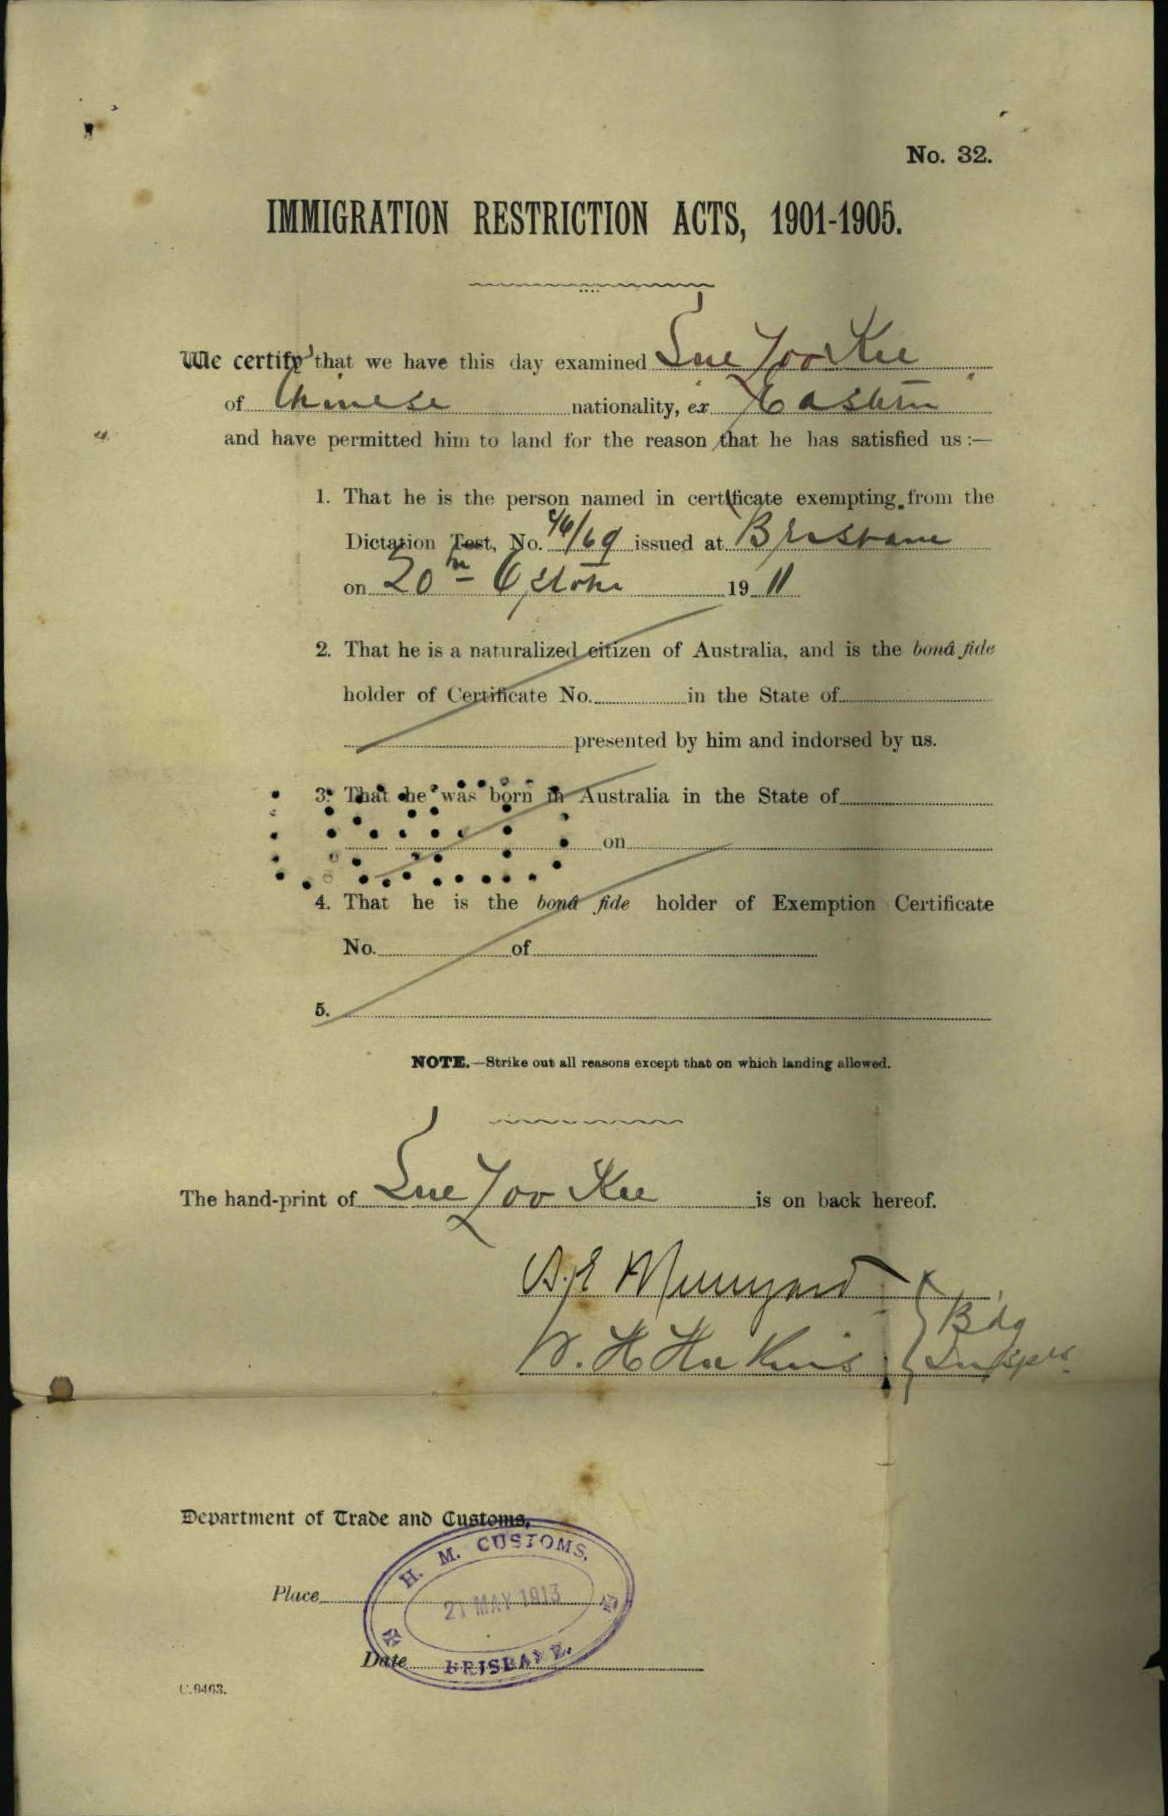 No. 32.
IMMIGRATION RESTRICTION ACTS, 1901-1905.
We certify that we have this day examined Sue Yoo Kee
of Chinese nationality, ex Eastern
and have permitted him to land for the reason that he has satisfied us :—
1. That he is the person named in certificate exempting from the
Dictation Test, No. issued at Brisbane
on 20th October 1911
2. That he is a naturalized citizen of Australia, and is the bonâ fide
holder of Certificate No. in the State of
presented by him and indorsed by us.
3. That he was born in Australia in the State of
on
4. That he is the bonâ fide holder of Exemption Certificate
No. of
5.
NOTE.—Strike out all reasons except that on which landing allowed.
The hand-print of Sue Yoo Kee is on back hereof.
W. H.
Bdg
Insprs
Department of Trade and Customs,
H. M. CUSTOMS.
Place
21 MAY 1913
Date
BRISBANE.
C.9463.